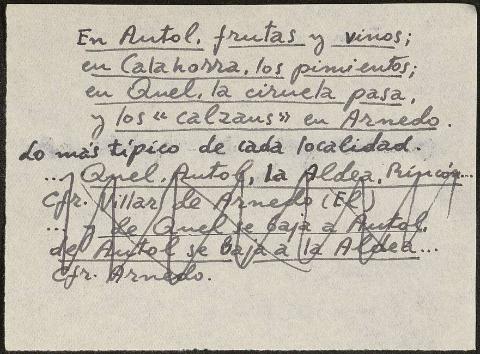 En Autol, frutas y vinos;
en Calahorra, los pimientos;
en Quel, la ciruela pasa,
y los "calzaus" en Arnedo.
Lo más típico de cada localidad.
... Quel, Autol, la Aldea, Rincón...
Cfr. Villar de Arnedo (El)
... y de Quel se baja a Autol,
de Autol se baja a la Aldea...
Cfr. Arnedo.